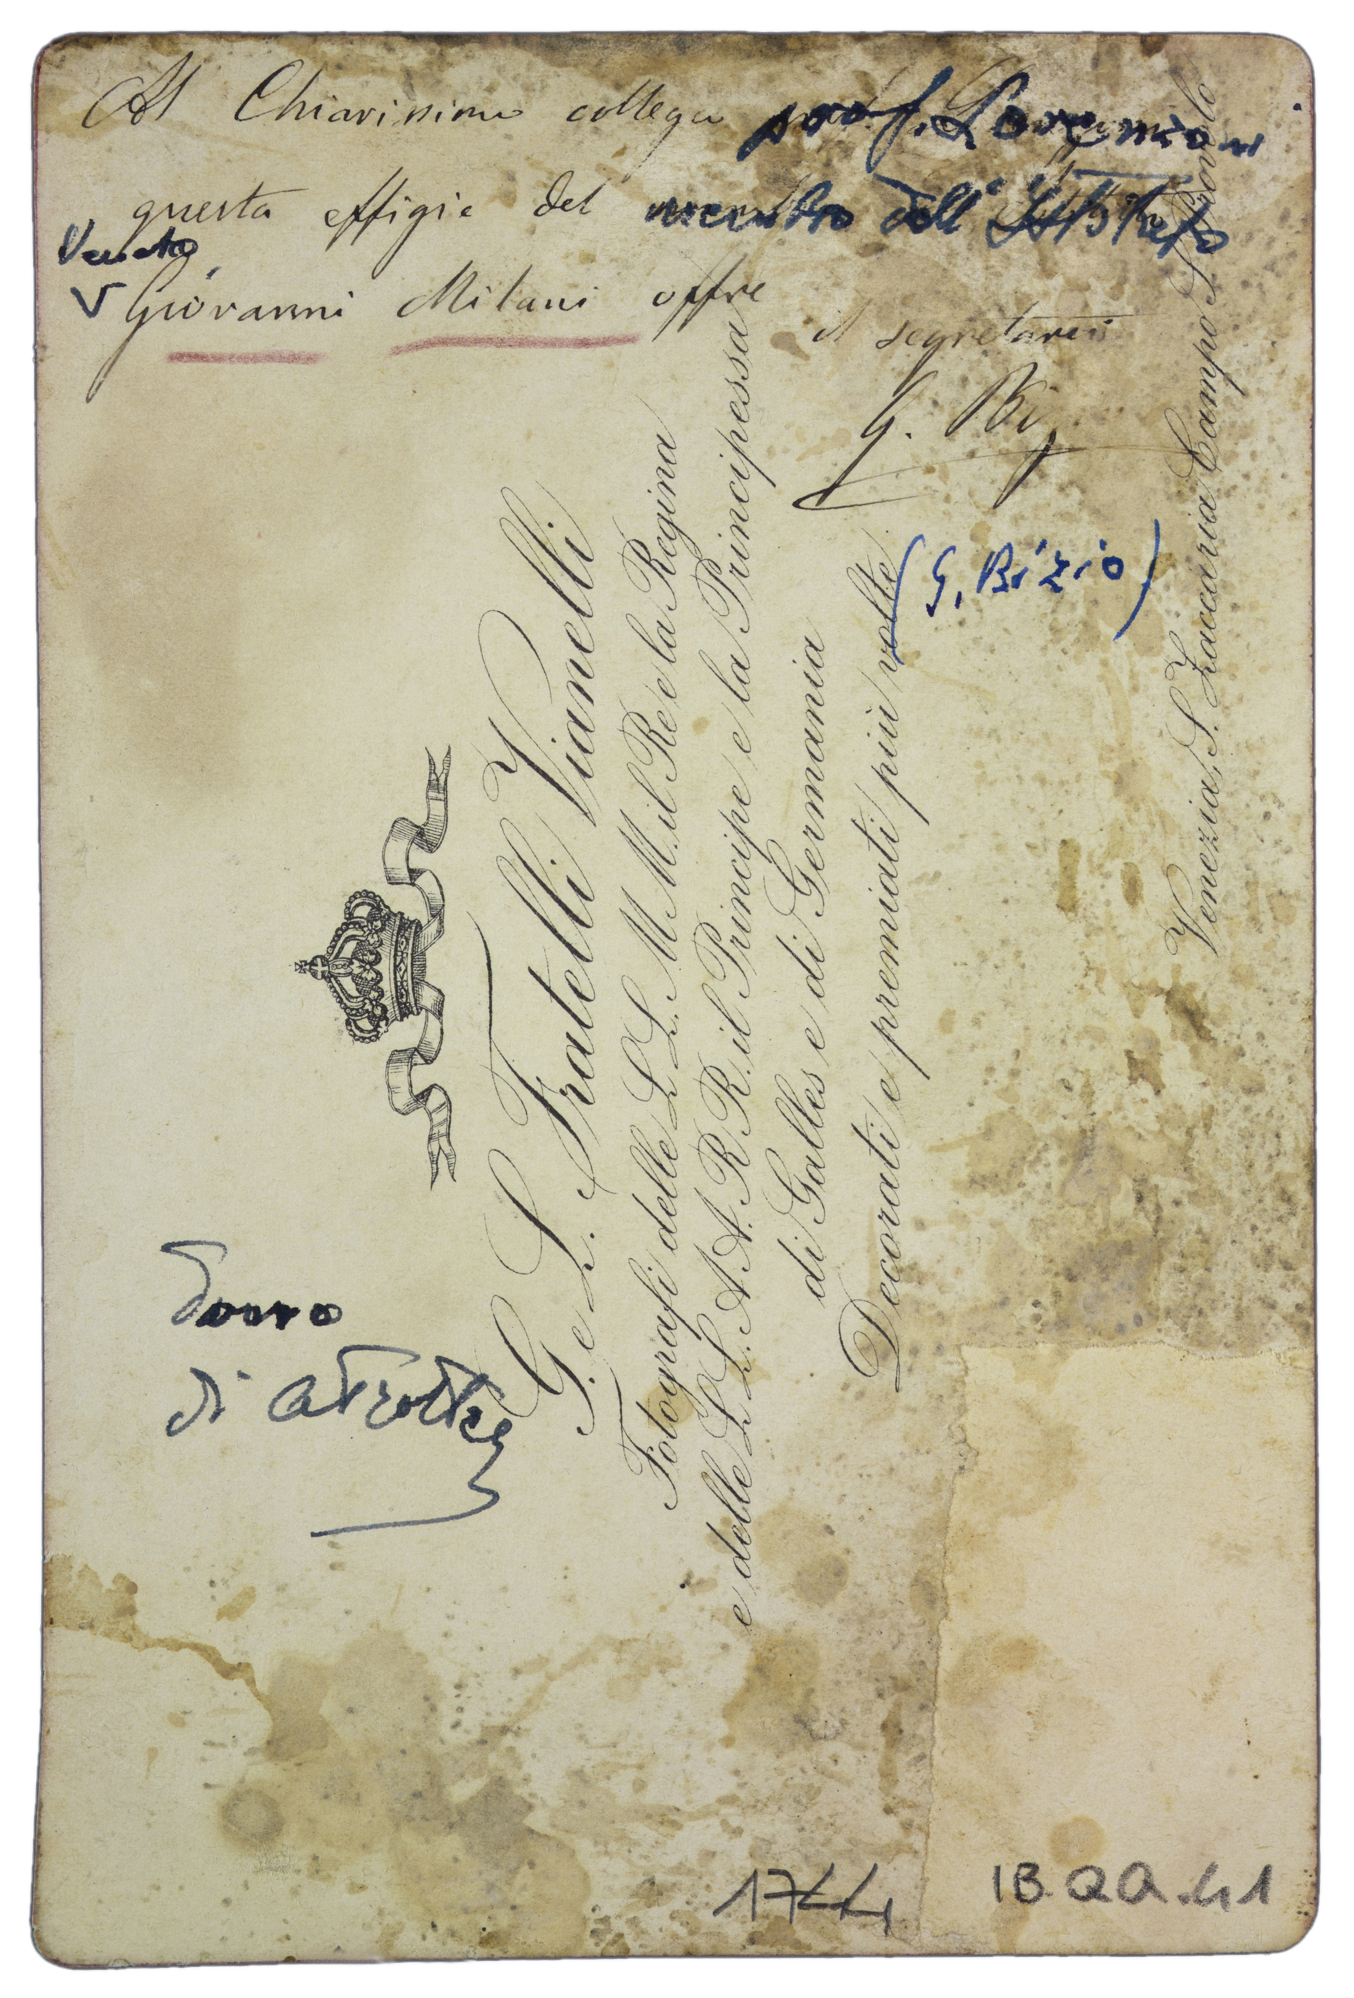 Al Chiarissimo collega prof. Lorenzoni
questa effigie del membro dell' Istituto
Veneto
Giovanni Milani offre
il segretario
G. Biz
(G. Bizio)
G. e L. Fratelli Vianelli
Fotografi delle LL. MM. il Re e la Regina
e delle LL. AA. RR. il Principe e la Principessa
di Galles e di Germania
Decorati e premiati più volte
Venezia, S. Zaccaria Campo S. Provolo
Dono
di
1744
IB.QQ.41